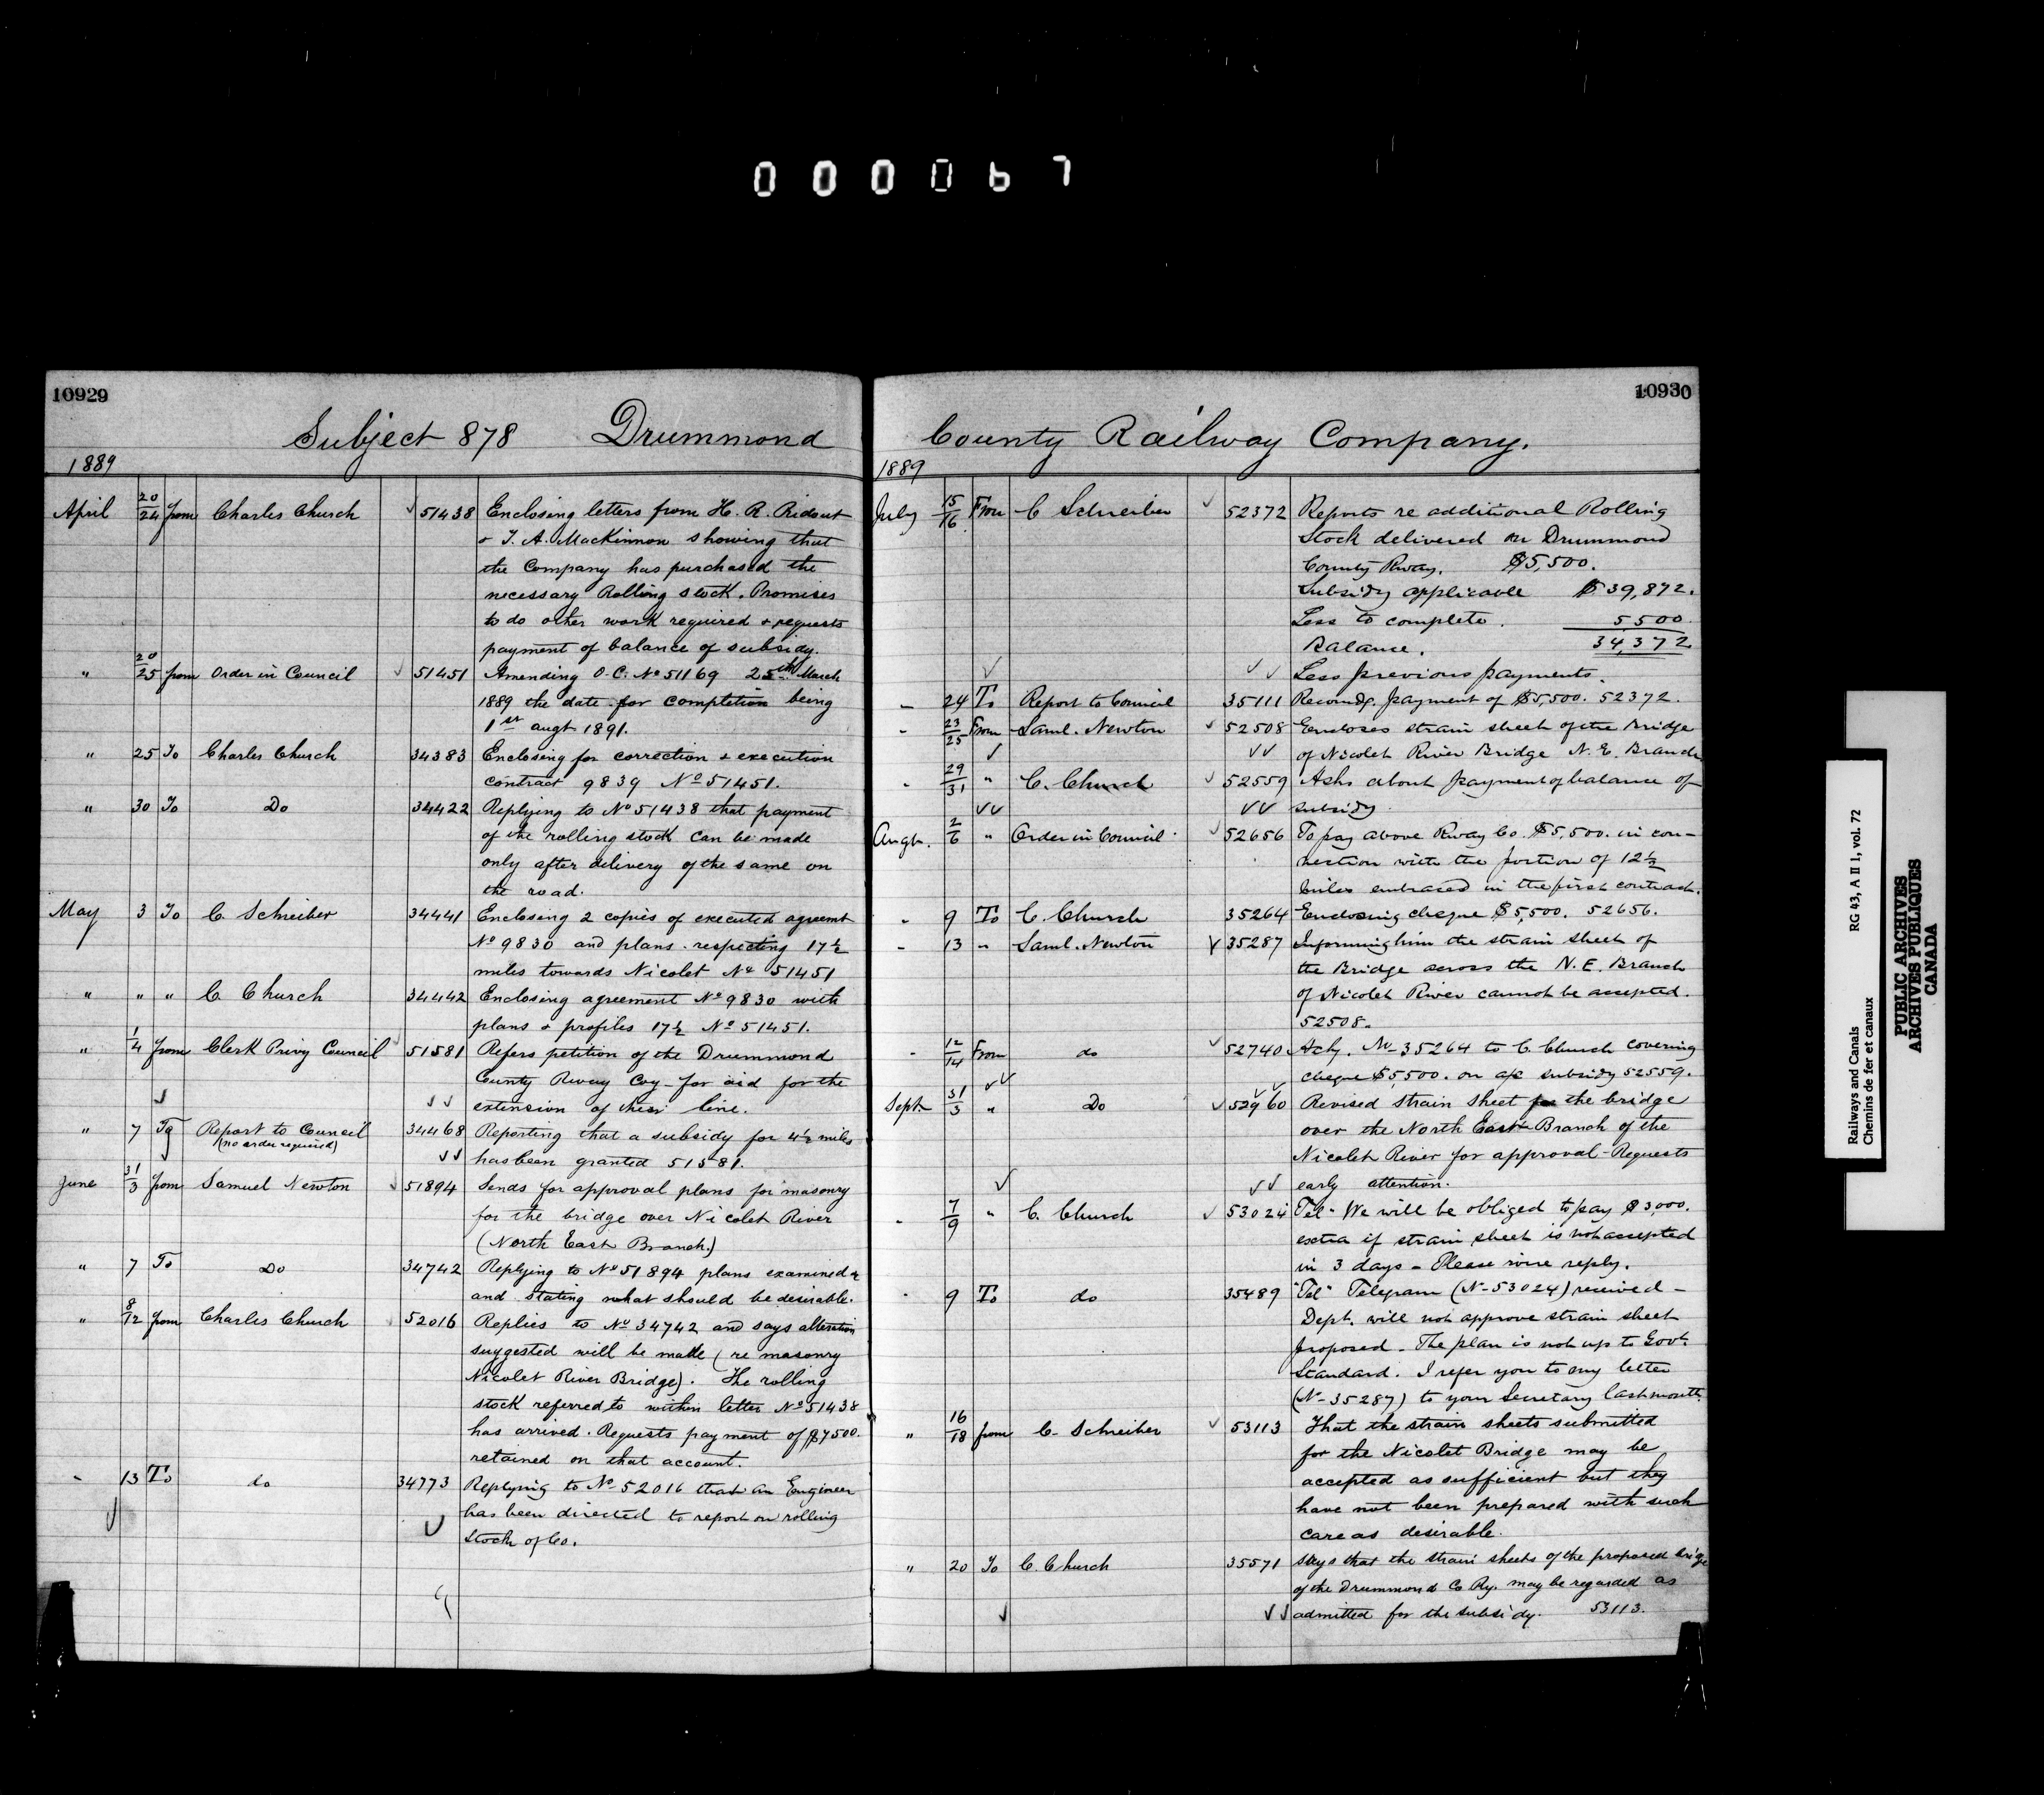 000067
10929
Subject 878 Drummond
1889
April 20/24 from Charles Church 51438 Enclosing letters from H. R. Ridout
& T. A. MacKinnon showing that
the Company has purchased the
necessary Rolling stock. Promises
to do other work required & requests
payment of balance of subsidy.
" 20/25 from Order in Council 51451 Amending O.C. No 51169 25th March
1889 the date for completion being
1st augt 1891.
" 25 To Charles Church 34383 Enclosing for correction & execution
contract 9839 No 51451.
" 30 To Do 34422 Replying to No 51438 that payment
of the rolling stock can be made
only after delivery of the same on
the road.
May 3 To C. Schreiber 34441 Enclosing 2 copies of executed agreemt
No 9830 and plans respecting 17½
miles towards Nicolet No 51451
" " " C. Church 34442 Enclosing agreement No 9830 with
plans & profiles 17½ No 51451.
" 1/4 from Clerk Privy Council 51581 Refers petition of the Drummond
County Rway Coy - for aid for the
extension of their line.
" 7 To Report to Council 34468 Reporting that a subsidy for 4½ miles
(no order required) has been granted 51581.
June 31/3 from Samuel Newton 51894 Sends for approval plans for masonry
for the bridge over Nicolet River
(North East Branch.)
" 7 To Do 34742 Replying to No 51894 plans examined &
and stating what should be desirable.
" 8/12 from Charles Church 52016 Replies to No 34742 and says alteration
suggested will be made (re masonry
Nicolet River Bridge). The rolling
stock referred to within letter No 51438
has arrived. Requests payment of $7500.
retained on that account.
- 13 To do 34773 Replying to No 52016 that an Engineer
has been directed to report on rolling
Stock of Co.
10930
County Railway Company.
1889
July 15/16 From C Schreiber 52372 Reports re additional Rolling
Stock delivered on Drummond
County Rway. $5,500.
Subsidy applicable $39,872.
Less to complete. 5500
Balance. 34,372
Less previous payments.
- 24 To Report to Council 35111 Recomdg. payment of $5,500. 52372.
- 23/25 From Saml. Newton 52508 Encloses strain sheet of the Bridge
of Nicolet River Bridge N. E. Branch
- 29/31 " C. Church 52559 Asks about payment of balance of
subsidy.
Augt. 2/6 " Order in Council 52656 To pay above Rway Co. $5,500. in con-
nection with the portion of 12½
miles embraced in the first contract.
- 9 To C. Church 35264 Enclosing cheque $5,500. 52656.
- 13 " Saml. Newton 35287 Informing him the strain sheet of
the Bridge across the N. E. Branch
of Nicolet River cannot be accepted.
52508.
- 12/14 From do 52740 Ackg. No 35264 to C. Church covering
cheque $5,500. on a/c subsidy 52559.
Sept. 31/3 " Do 52960 Revised strain sheet for the bridge
over the North East Branch of the
Nicolet River for approval - Requests
early attention.
- 7/9 " C. Church 53024 "Tel" We will be obliged to pay $3,000.
extra if strain sheet is not accepted
in 3 days - Please wire reply.
- 9 To do 35489 "Tel" Telegram (No 53024) received -
Dept. will not approve strain sheet
proposed - The plan is not up to Govt.
Standard. I refer you to my letter
(No 35287) to your Secretary last month.
" 16/18 from C. Schreiber 53113 That the strain sheets submitted
for the Nicolet Bridge may be
accepted as sufficient but they
have not been prepared with such
care as desirable.
" 20 To C. Church 35571 Says that the strain sheets of the proposed bridge
of the Drummond Co Ry. may be regarded as
admitted for the subsidy. 53113.
Railways and Canals RG 43, A II 1, vol. 72
Chemins de fer et canaux
PUBLIC ARCHIVES
ARCHIVES PUBLIQUES
CANADA